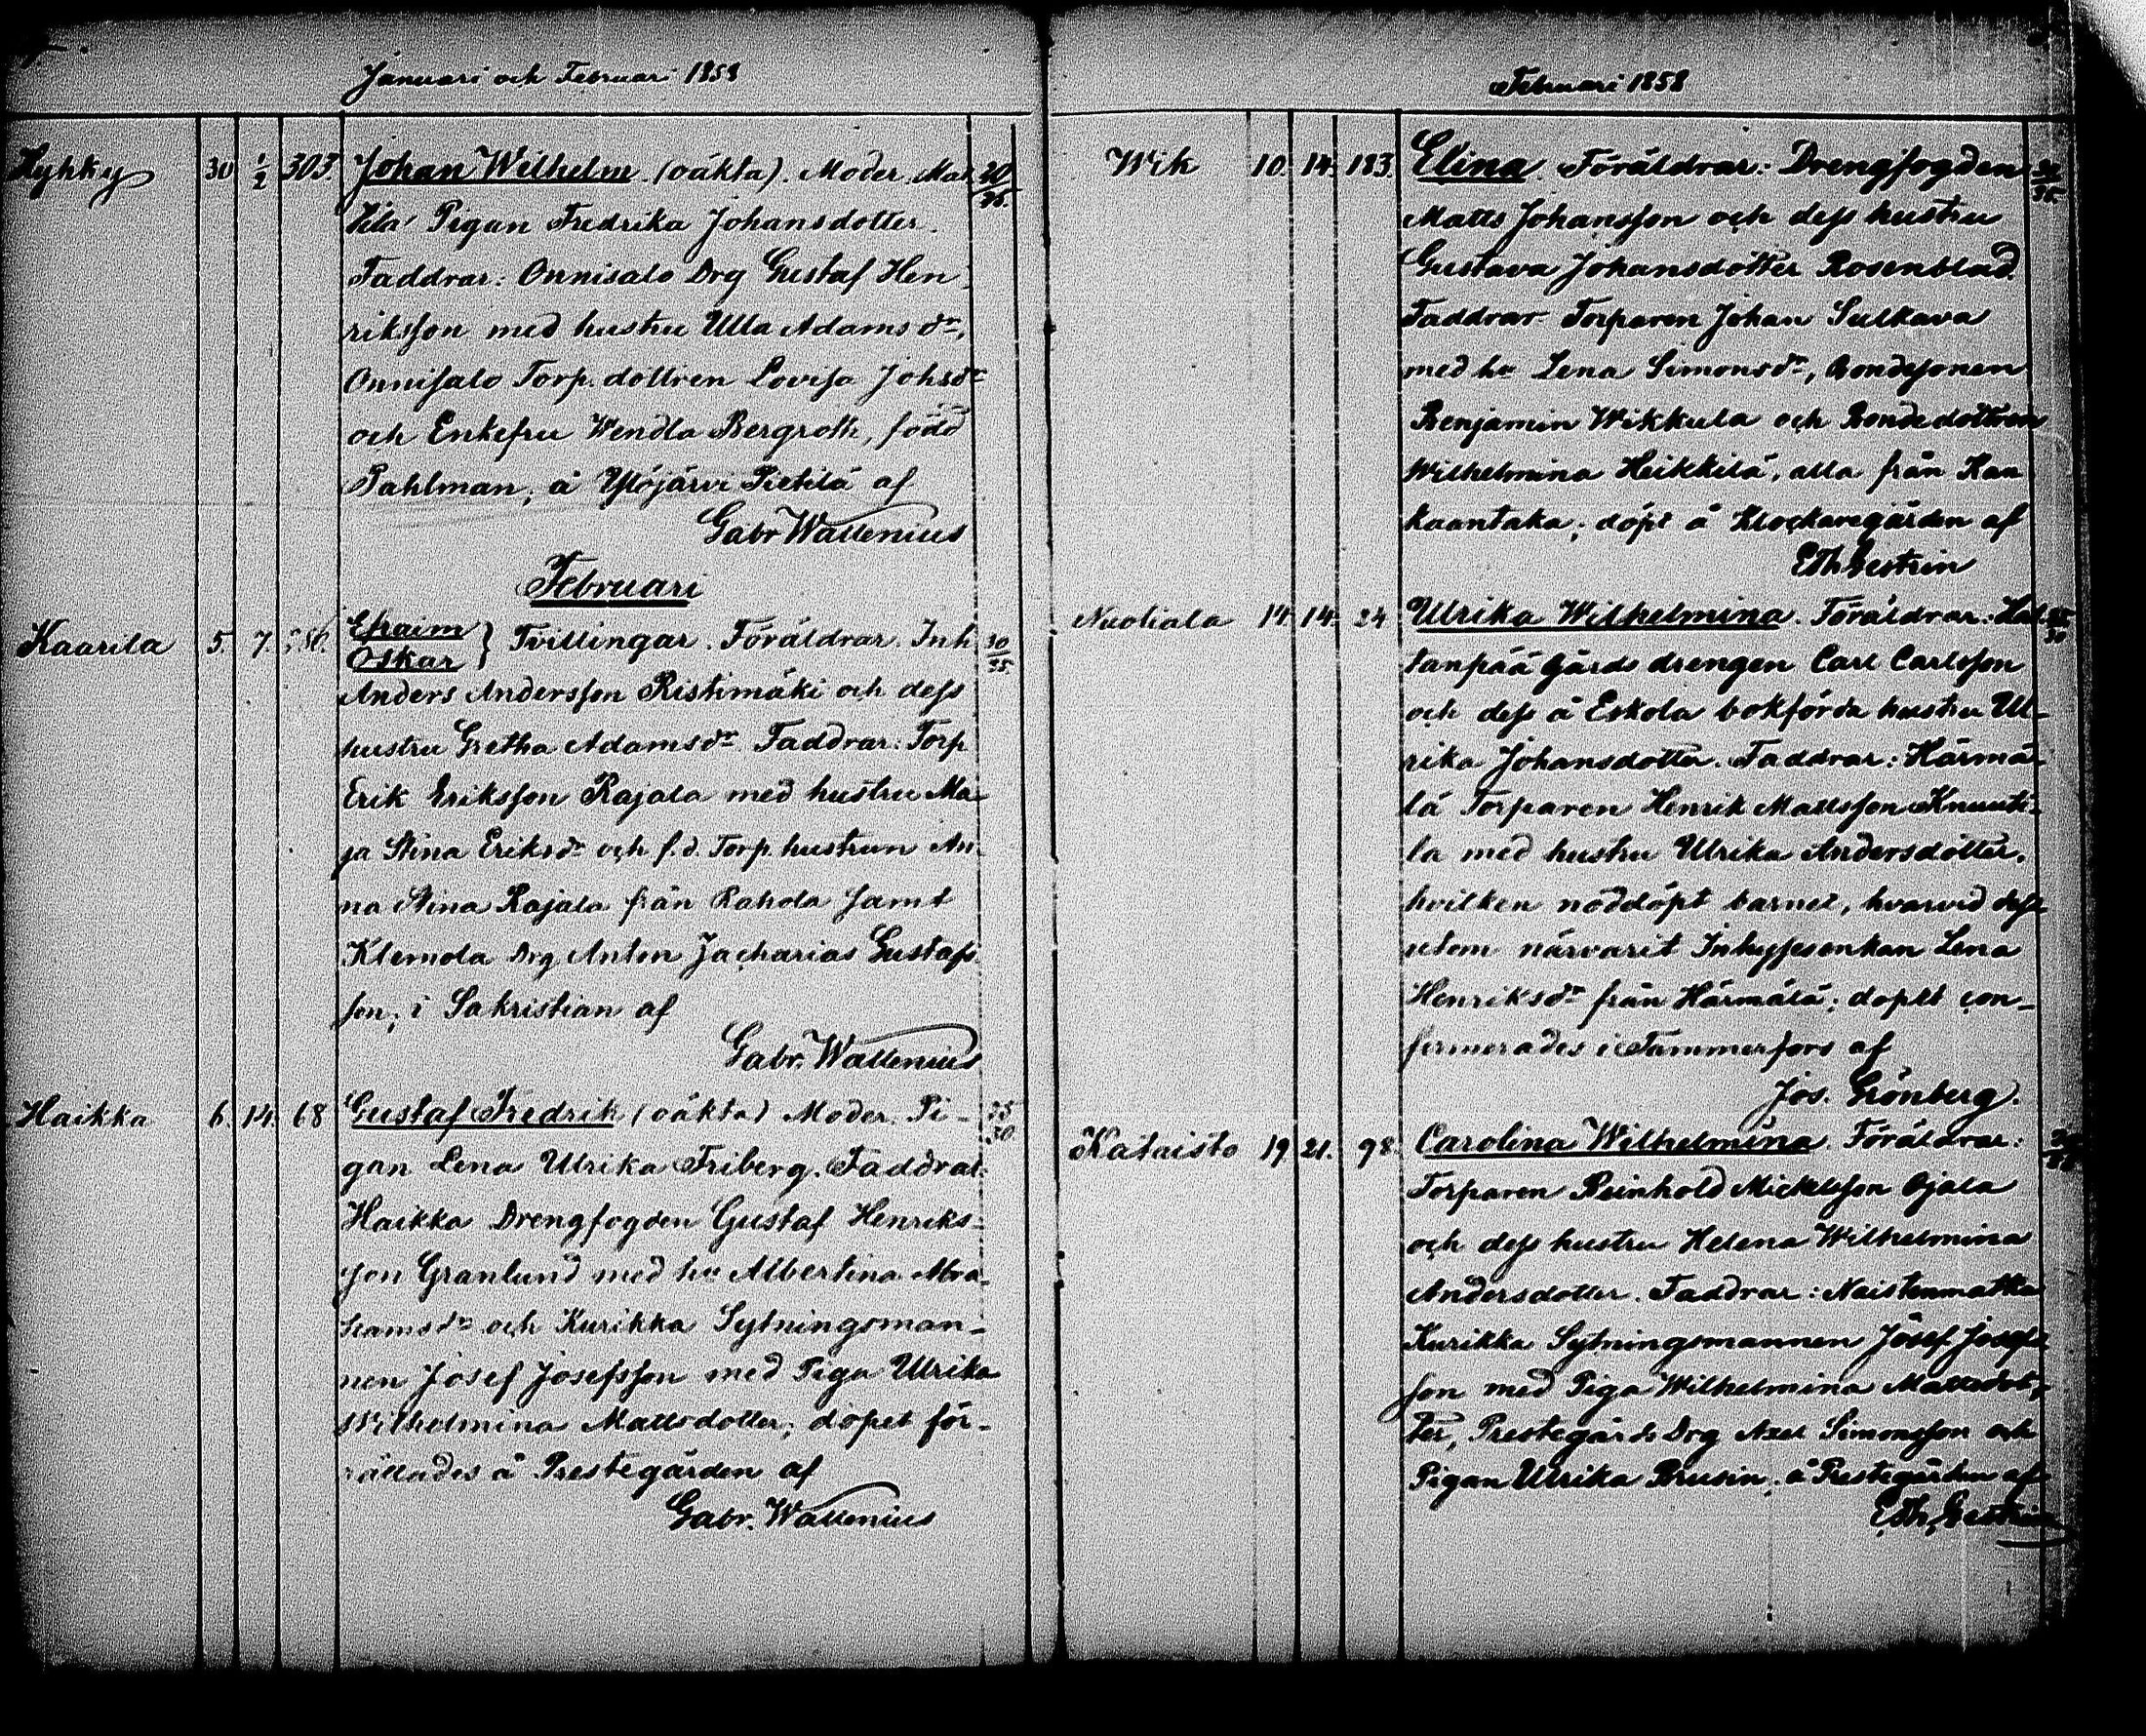 Januari och Februari 1858
Lyhky 30 1/2 303. Johan Wilhelm (oäkta). Moder. Mat 30/35.
tila Pigan Fredrika Johansdotter.
Faddrar: Onnisalo Drg Gustaf Hen-
riksson med hustru Ulla Adams dr,
Onnisalo Torp. dottren Lovisa Johsdr
och Enkefru Wendla Bergroth, född
Pahlman, å Ylöjärvi Pietilä af
Gabr Wallenius
Februari
Kaarila 5. 7. Efraim
Oskar } Tvillingar. Föräldrar. Inh 30/35.
Anders Andersson Ristimäki och dess
hustru Gretha Adamsdr Faddrar: Torp
Erik Eriksson Rajala med hustru Ma-
ja Stina Eriksdr och f.d. Torp. hustrun An-
na Stina Rajala från Rahola samt
Klemola Drg Anton Zacharias Gustafs
son; i Sakristian af
Gabr. Wallenius
Haikka 6. 14. 68 Gustaf Fredrik (oäkta) Moder. Pi- 25/30.
gan Lena Ulrika Friberg. Faddrar:
Haikka Drengfogden Gustaf Henriks-
son Granlund med hu Albertina Abra-
hamsdr och Kurikka Sytningsman-
nen Josef Josefsson med Piga Ulrika
Wilhelmina Mattsdotter; döpet för-
rättades å Prestegården af
Gabr. Wallenius
Februari 1858
Wik 10. 14. 183. Elina. Föräldrar: Drengfogden
Matts Johansson och dess hustru
Gustava Johansdotter Rosenblad.
Faddrar Torparen Johan Sulkava
med hu Lena Simonsdr, Bondesonen
Benjamin Wikkula och Bondedottren
Wilhelmina Heikkilä, alla från Kaa
kaantaka; döpt å Klockaregården af
E Th Gestrin
Nuoliala 14. 14. 24 Ulrika Wilhelmina. Föräldrar: Hal
tanpää Gårds drengen Carl Carlsson
och dess å Eskola bokförda hustru Ul-
rika Johansdotter. Faddrar: Härmä-
lä Torparen Henrik Mattsson Knuuti-
la med hustru Ulrika Andersdotter,
hvilken nöddöpt barnet, hvarvid dess-
utom närvarit Inhysesenkan Lena
Henriksdr från Härmälä; döpet con-
firmerades i Tammerfors af
Jos. Grönberg.
Kataisto 19. 21. 98. Carolina Wilhelmina. Föräldrar:
Torparen Reinhold Mickelsson Ojala
och dess hustru Helena Wilhelmina
Andersdotter. Faddrar: Naistenmatka
Kurikka Sytningsmannen Josef Josefs-
son med Piga Wilhelmina Mattsdot-
ter, Prestegårds Drg Axel Simonsson och
Pigan Ulrika Brusin; å Prestegården af
E. Th. Gestrin